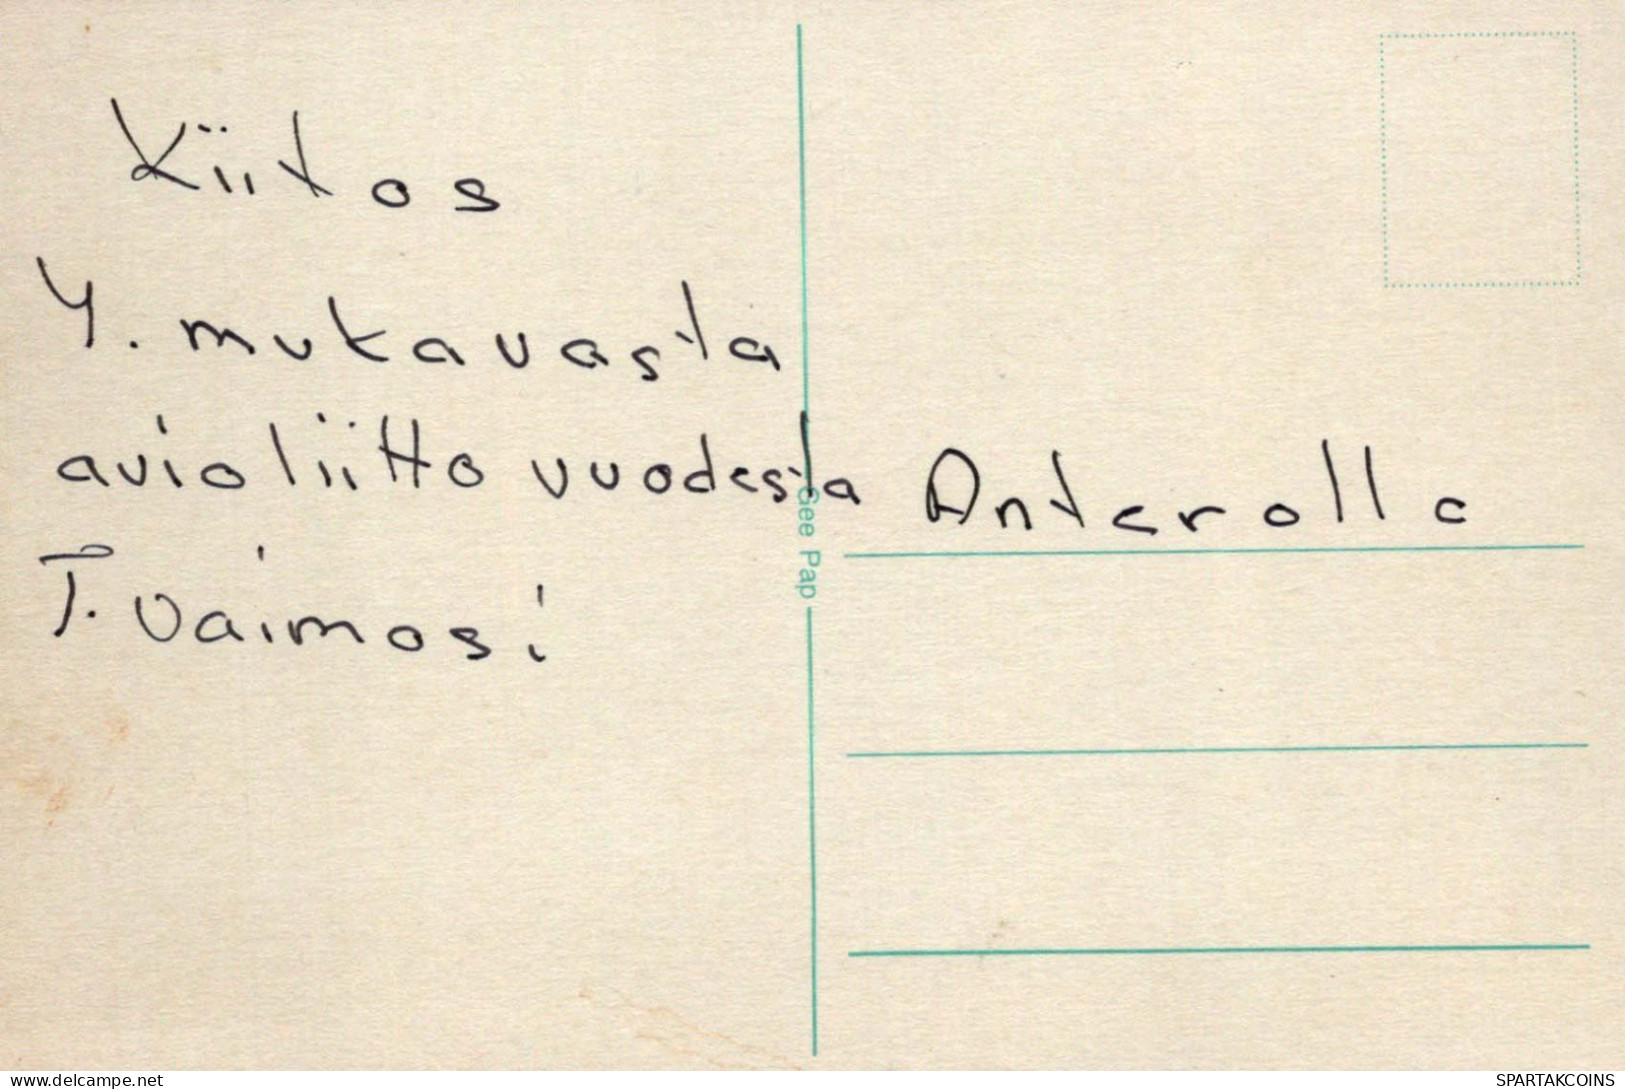 Kiitos
4. mukavasta
avioliitto vuodesta
T. vaimosi
Anterolle
Gee Pap
www.delcampe.net
SPARTAKCOINS